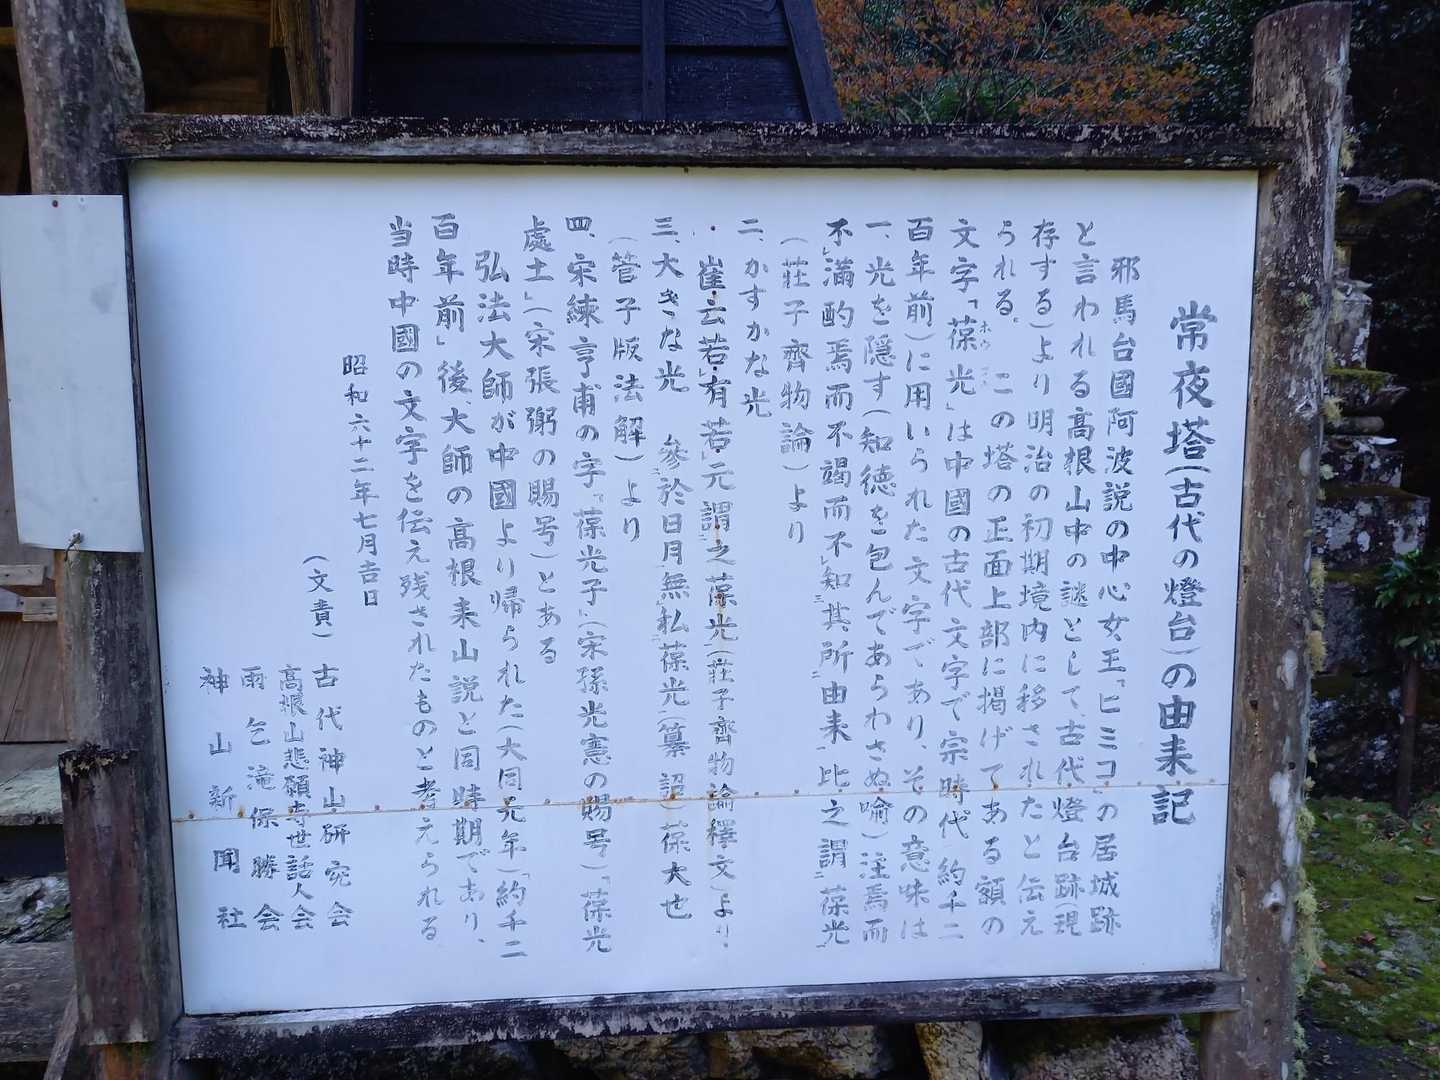 常夜塔(古代の燈台)の由来記
邪馬台國阿波説の中心女王「ヒミコ」の居城跡
と言われる高根山中の謎として、古代燈台跡(現
存する)より明治の初期境内に移されたと伝え
られる。この塔の正面上部に掲げてある額の
文字「葆光」は中國の古代文字で宗時代(約千二
ホウ
百年前)に用いられた文字であり、その意味は
一、光を隠す(知徳を包んであらわさぬ喻)注焉而
不満酌焉而不竭而不知其所由来比之謂葆光
(莊子齊物論)より
二、かすかな光
崔云若有若元謂之葆光(莊子齊物論釋文)より
三、大きな光 參於日月無私葆光(纂詔)葆大也
(管子版法解)より
四、宋練亨甫の字「葆光子」(宋孫光憲の賜号)「葆光
處士」(宋張弼の賜号)とある
弘法大師が中國より帰られた(大同元年)「約千二
百年前」後、大師の高根来山説と同時期であり、
当時中國の文字を伝え残されたものと考えられる
昭和六十二年七月吉日
(文責)古代神山研究会
高根山悲願寺世話人会
雨乞滝保勝会
神山新聞社